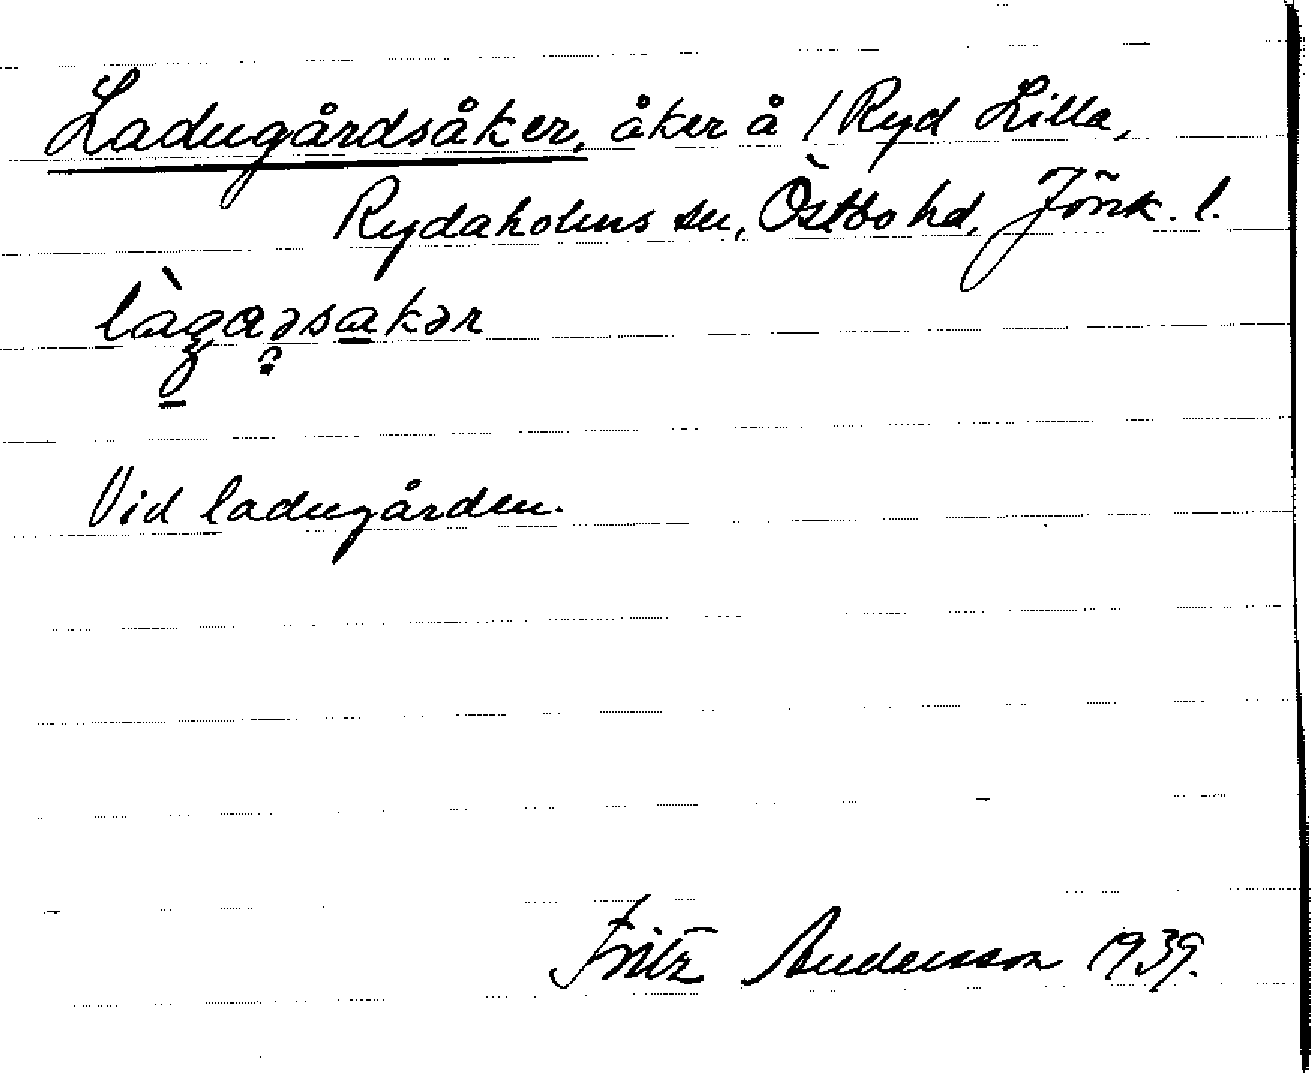 Ladugårdsåker, åker å / Ryd Lilla,
Rydaholms sn, Östbo hd, Jönk. l.
làgaəsakər
Vid ladugården.
Fritz Andersson 1939.